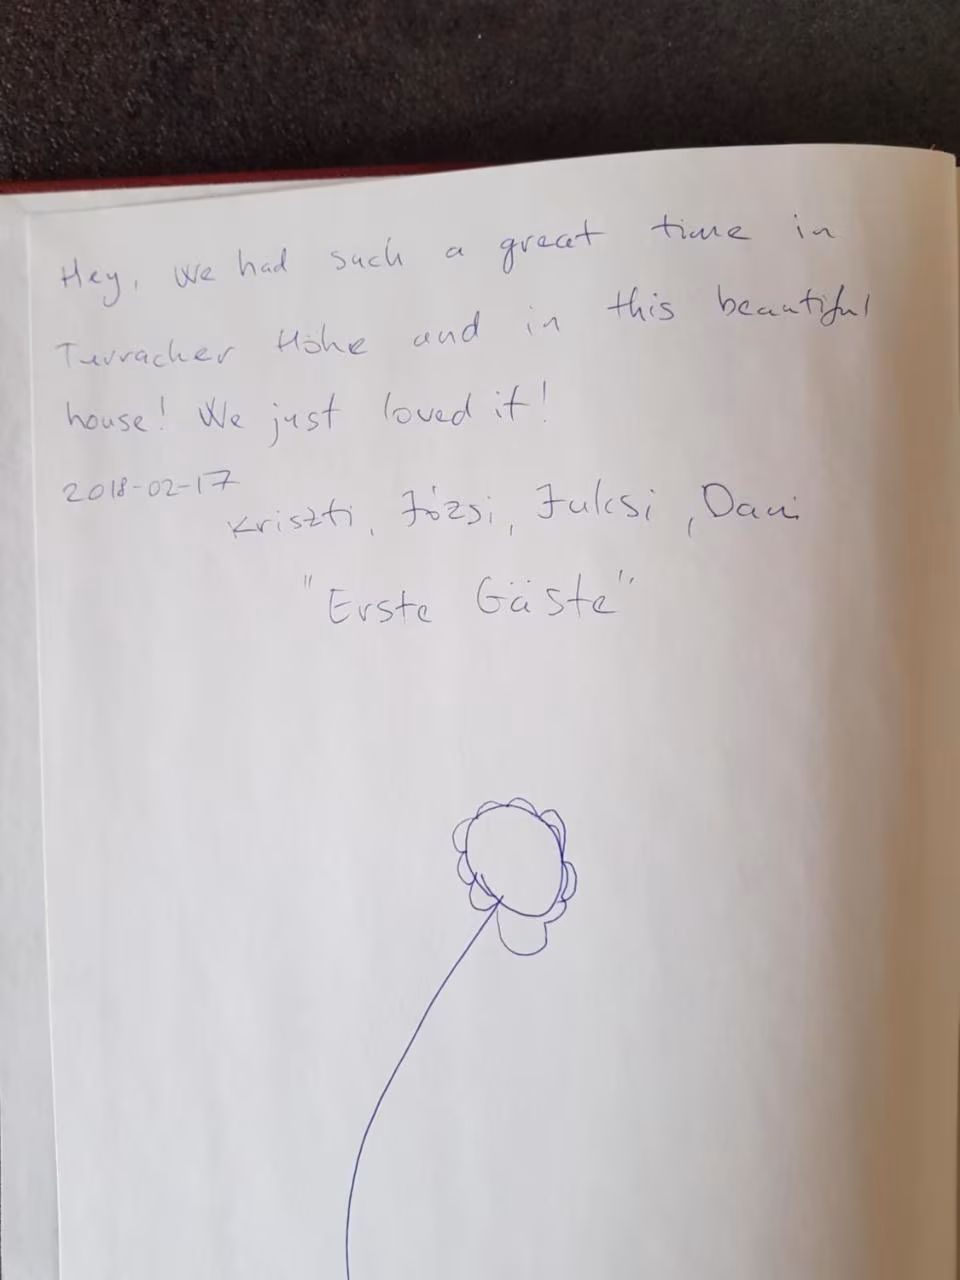 Hey, we had such a great time in
Turracher Höhe and in this beautiful
house! We just loved it!
2018-02-17
Kriszti, Józsi, Julcsi, Dani
"Erste Gäste"